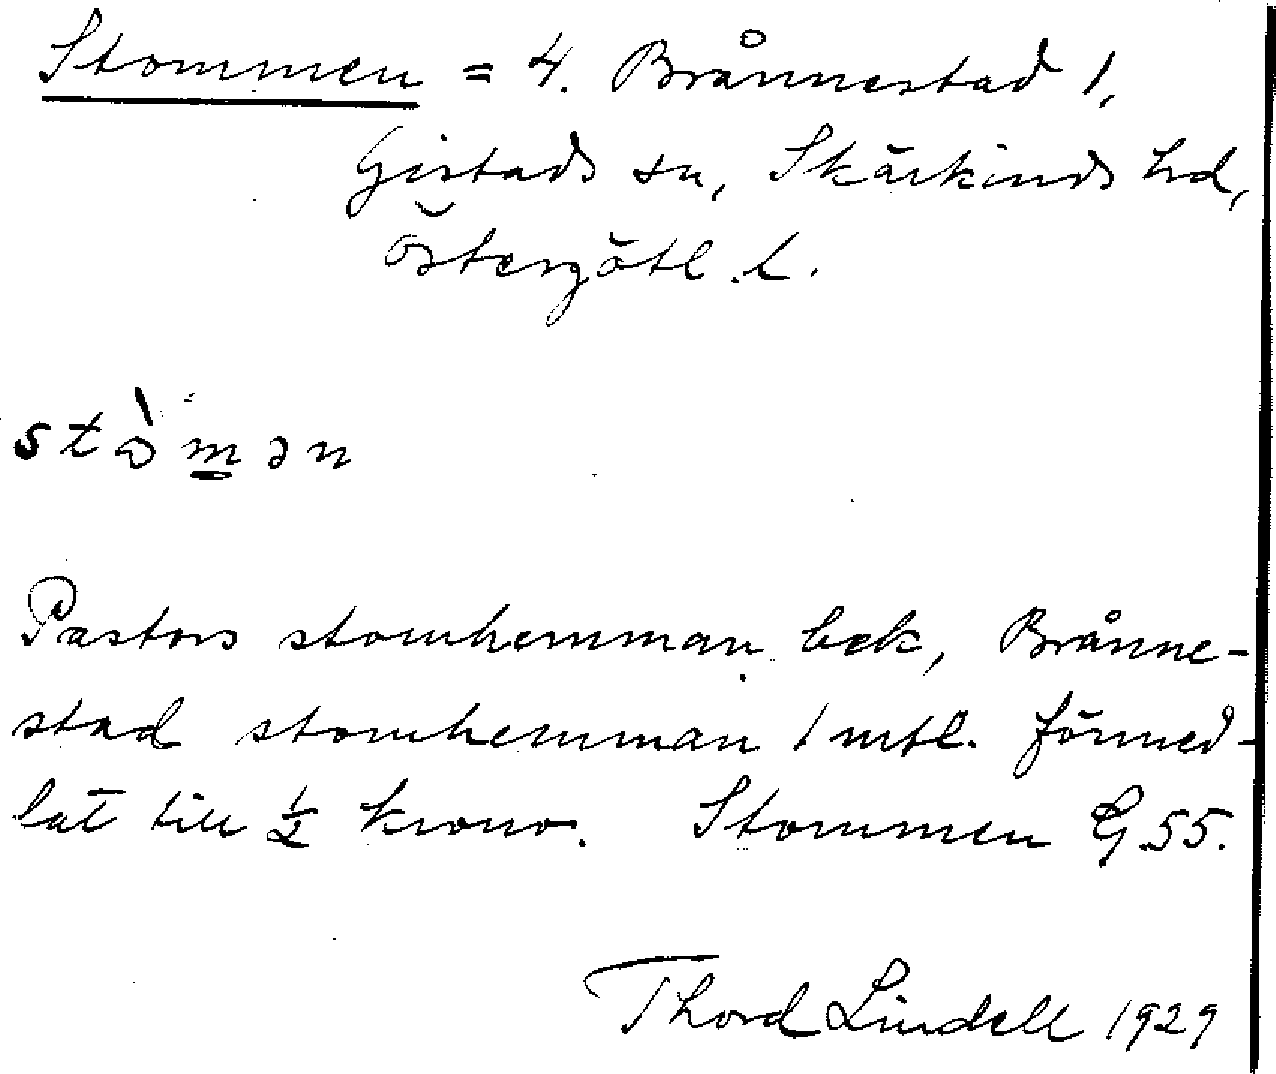 Stommen = 4. Brånnestad 1,
Gistads sn, Skärkinds hd,
Östergötl. l.
stòmən
Pastors stomhemman bek, Brånne-
stad stomhemman 1 mtl. förmed-
lat till ½ krono. Stommen G 55.
Thord Lindell 1929